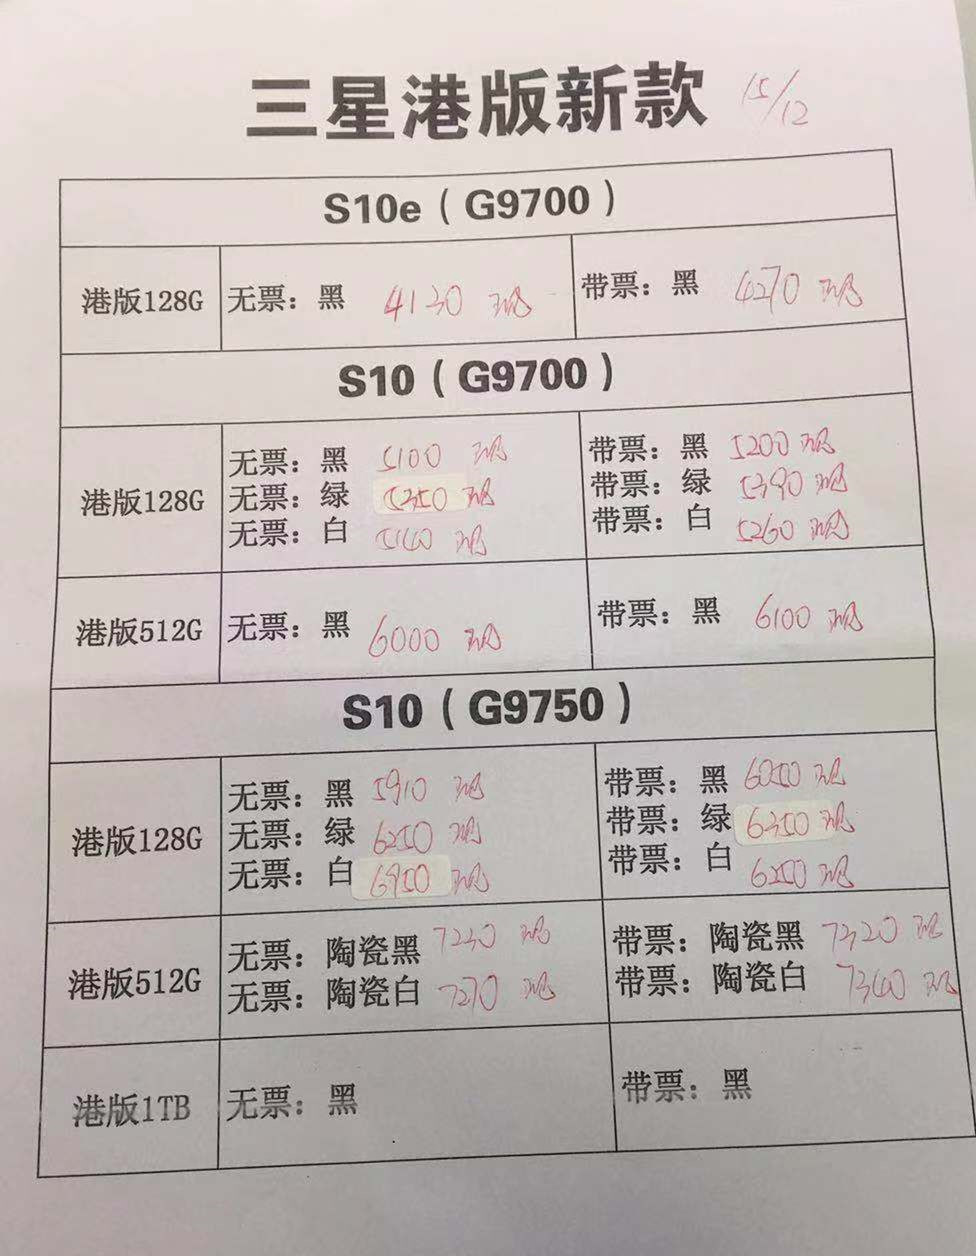 三星港版新款 15/12
S10e（G9700）
港版128G 无票：黑 4130 现 带票：黑 4270 现
S10（G9700）
港版128G
无票：黑 5100 现 带票：黑 5200 现
无票：绿 5350 现 带票：绿 5390 现
无票：白 5140 现 带票：白 5260 现
港版512G 无票：黑 6000 现 带票：黑 6100 现
S10（G9750）
港版128G
无票：黑 5910 现 带票：黑 6050 现
无票：绿 6250 现 带票：绿 6350 现
无票：白 6950 现 带票：白 6250 现
港版512G
无票：陶瓷黑 7230 现 带票：陶瓷黑 7320 现
无票：陶瓷白 7270 现 带票：陶瓷白 7340 现
港版1TB 无票：黑 带票：黑